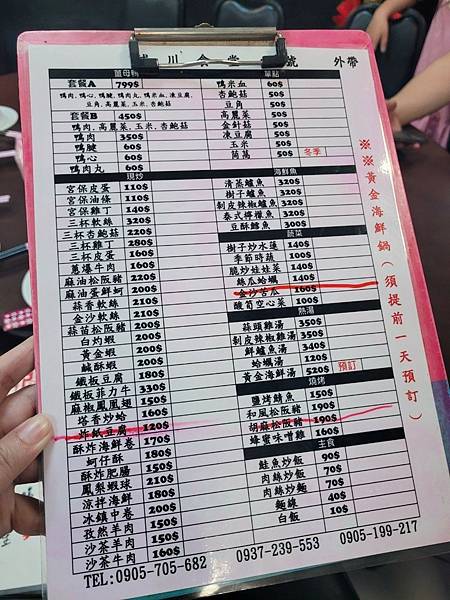 川食堂 號 外帶
薑母鴨
套餐A 799$
鴨肉, 鴨心, 鴨腱, 鴨肉丸, 鴨米血, 凍豆腐,
豆角, 高麗菜, 玉米, 杏鮑菇
套餐B 450$
鴨肉, 高麗菜, 玉米, 杏鮑菇
鴨肉 350$
鴨腱 60$
鴨心 60$
鴨肉丸 60$
現炒
宮保皮蛋 110$
宮保油條 110$
宮保雞丁 140$
三杯軟絲 320$
三杯杏鮑菇 220$
三杯雞丁 280$
三杯皮蛋 160$
蔥爆牛肉 160$
麻油松阪豬 220$
麻油蛋鮮蚵 200$
蒜香軟絲 210$
金沙軟絲 210$
蒜苗松阪豬 200$
白灼蝦 210$
黃金蝦 210$
鹹酥蝦 210$
鐵板豆腐 180$
鐵板菲力牛 330$
麻椒鳳凰翅 150$
塔香炒蛤 160$
炸紙豆腐 120$
酥炸海鮮卷 170$
蚵仔酥 180$
酥炸肥腸 150$
鳳梨蝦球 180$
涼拌海鮮 160$
冰鎮中卷 200$
孜然羊肉 150$
沙茶羊肉 150$
沙茶牛肉 160$
單點
鴨米血 60$
杏鮑菇 50$
豆角 50$
高麗菜 50$
金針菇 50$
凍豆腐 50$
玉米 50$
茼萵 50$ 冬季
海鮮魚
清蒸鱸魚 320$
樹子鱸魚 320$
剝皮辣椒鱸魚 320$
泰式檸檬魚 320$
豆酥鱈魚 300$
蔬菜
樹子炒水蓮 140$
季節時蔬 100$
脆炒娃娃菜 140$
絲瓜蛤蠣 140$
金沙苦瓜 160$
酸筍空心菜 100$
熱湯
蒜頭雞湯 350$
剝皮辣椒雞湯 350$
鮮鱸魚湯 340$
蛤蠣湯 120$
黃金海鮮鍋 520$ 預訂
燒烤
鹽烤鯖魚 150$
和風松阪豬 190$
胡麻松阪豬 190$
蜂蜜味噌雞 160$
主食
鮭魚炒飯 90$
肉絲炒飯 70$
肉絲炒麵 70$
麵線 40$
白飯 10$
※※黃金海鮮鍋(須提前一天預訂)
TEL:0905-705-682 0937-239-553 0905-199-217